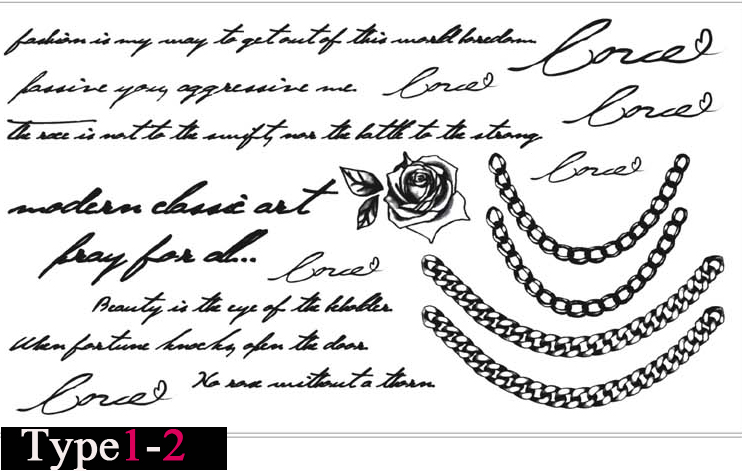 fashion is my way to get out of this world boredom.
passive you, aggressive me.
the race is not to the swift, nor the battle to the strong
modern classic art
pray for all...
Beauty is the eye of the beholder
When fortune knocks, open the door
No rose without a thorn.
Type1-2